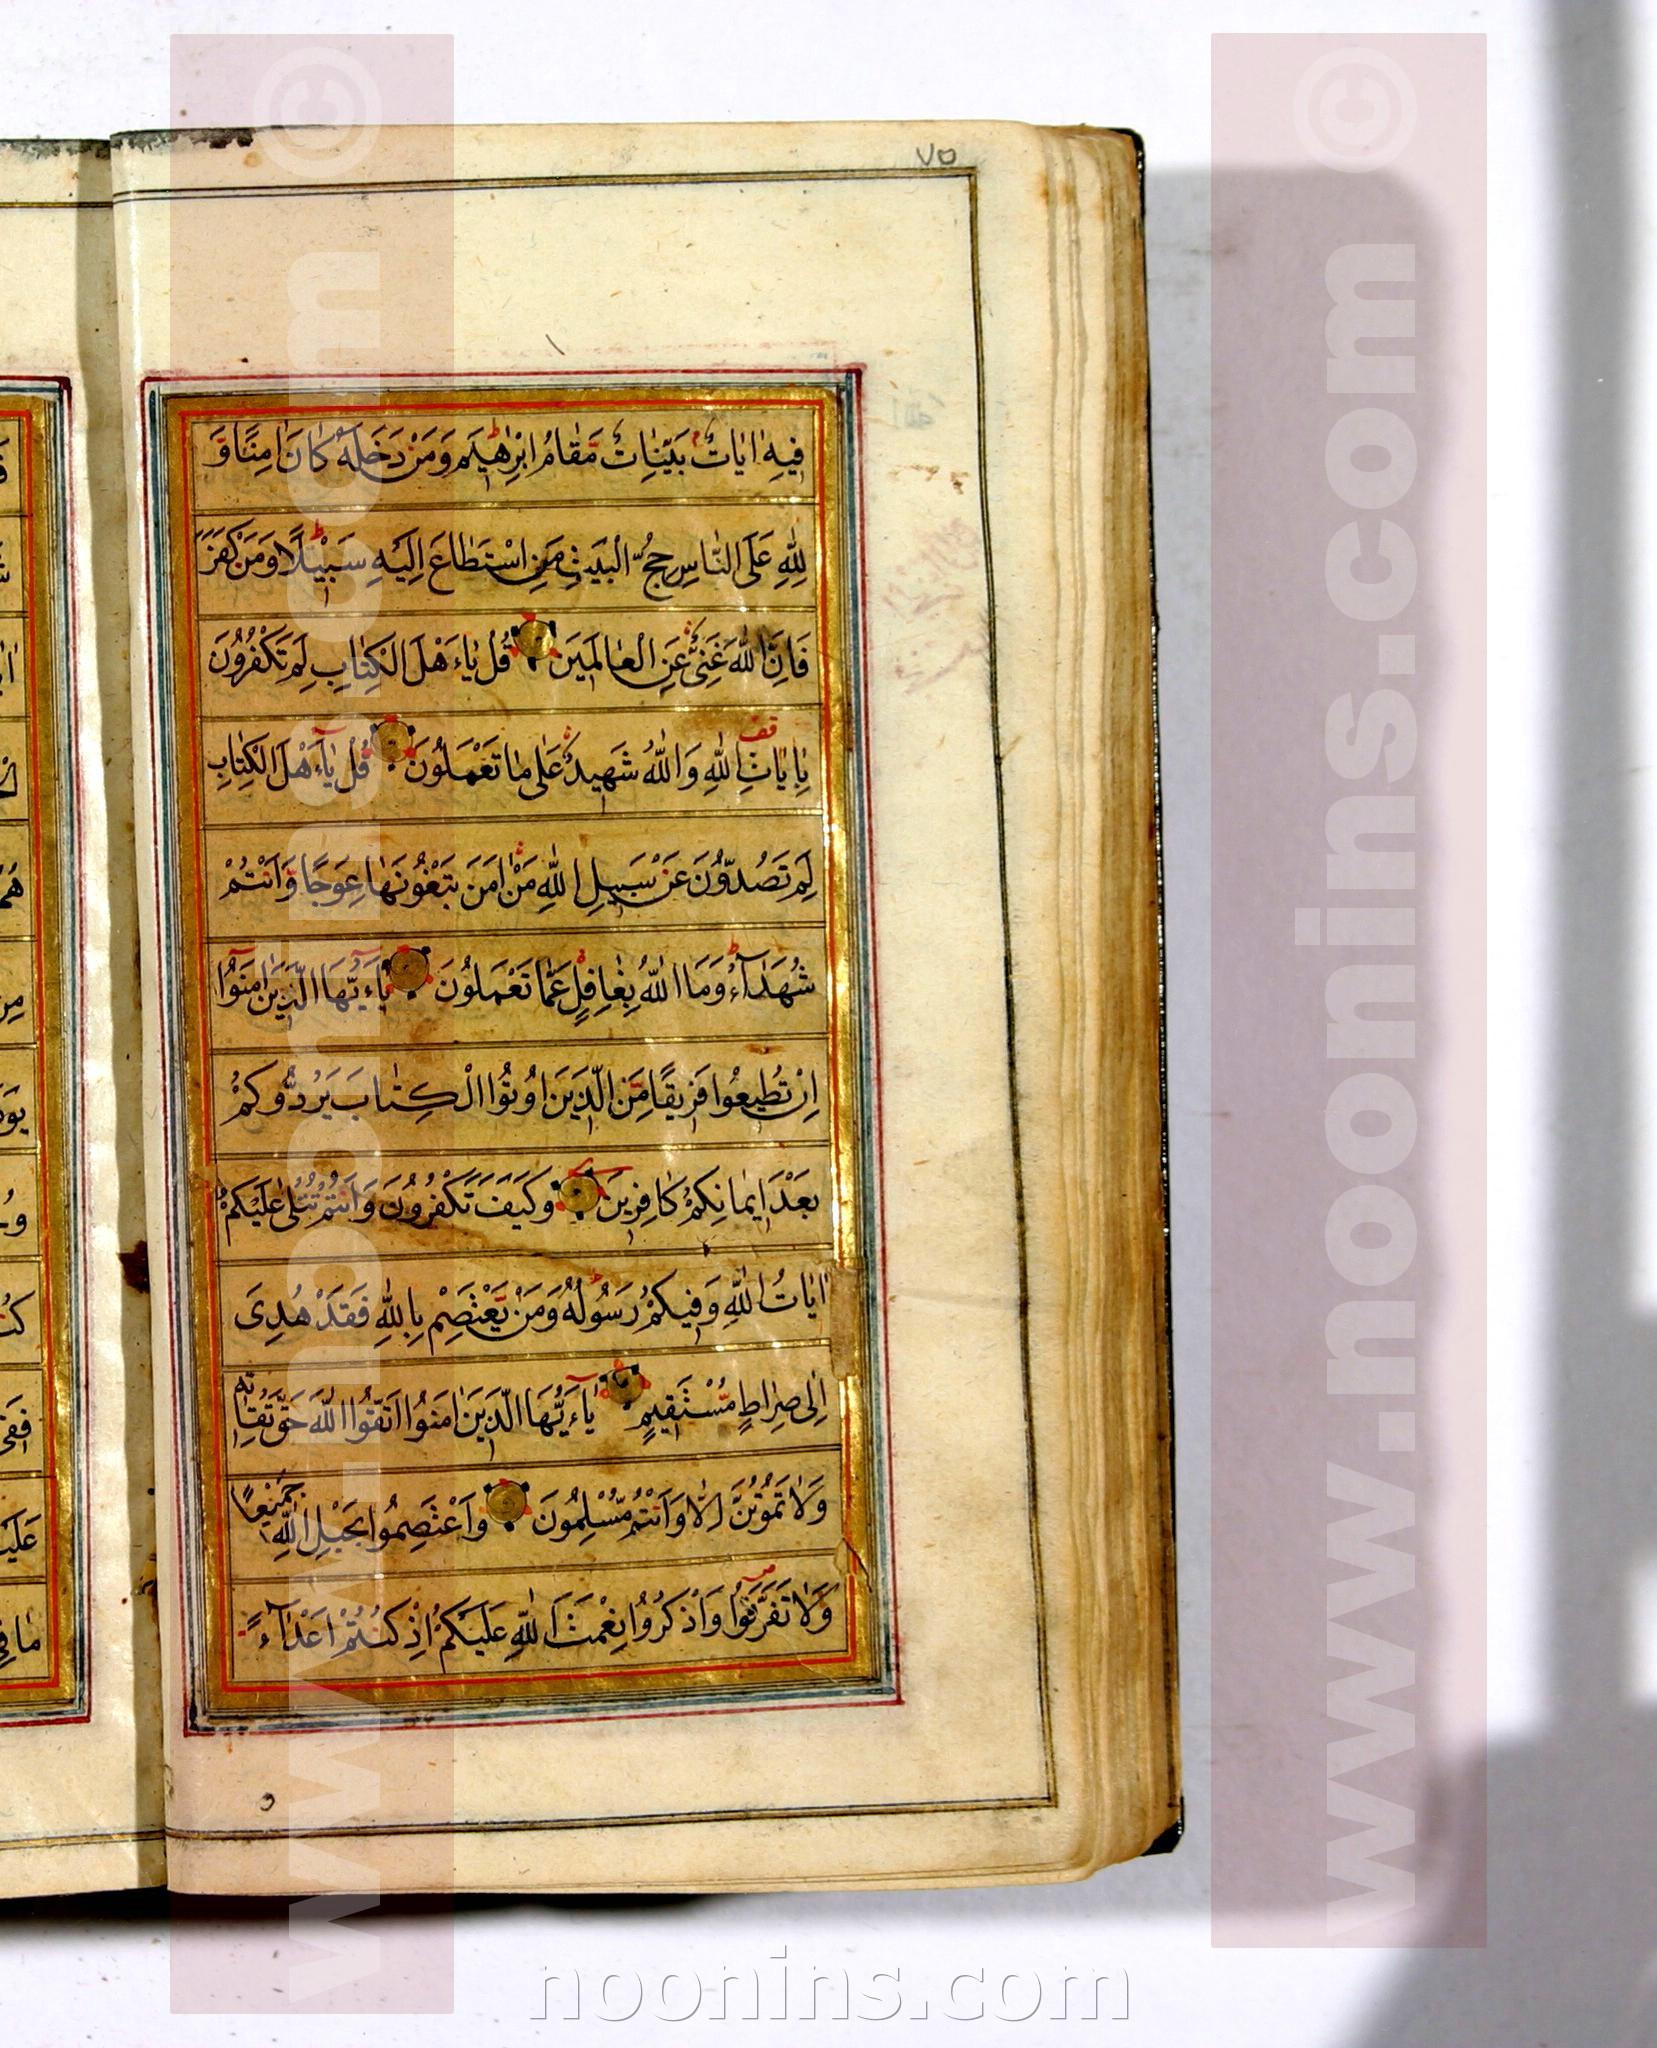 ٧٥
فِيهِ اٰيَاتٌ بَيِّنَاتٌ مَّقَامُ اِبْرٰهِيْمَ وَمَنْ دَخَلَهُ كَانَ اٰمِنًا وَّ
لِلّٰهِ عَلَى النَّاسِ حِجُّ الْبَيْتِ مَنِ اسْتَطَاعَ اِلَيْهِ سَبِيْلًا وَمَنْ كَفَرَ
فَاِنَّ اللّٰهَ غَنِىٌّ عَنِ الْعَالَمِيْنَ قُلْ يَاءَهْلَ الْكِتَابِ لِمَ تَكْفُرُونَ
بِاٰيَاتِ اللّٰهِ وَاللّٰهُ شَهِيدٌ عَلٰى مَا تَعْمَلُونَ قُلْ يَاءَهْلَ الْكِتَابِ
لِمَ تَصُدُّونَ عَنْ سَبِيلِ اللّٰهِ مَنْ اٰمَنَ تَبْغُونَهَا عِوَجًا وَّاَنْتُمْ
شُهَدَآءُ وَمَا اللّٰهُ بِغَافِلٍ عَمَّا تَعْمَلُونَ يَاءَيُّهَا الَّذِيْنَ اٰمَنُوٓا
اِنْ تُطِيعُوا فَرِيقًا مِّنَ الَّذِيْنَ اُوتُوا الْكِتَابَ يَرُدُّوكُمْ
بَعْدَ اِيمَانِكُمْ كَافِرِينَ وَكَيْفَ تَكْفُرُونَ وَاَنْتُمْ تُتْلٰى عَلَيْكُمْ
اٰيَاتُ اللّٰهِ وَفِيكُمْ رَسُولُهُ وَمَنْ يَعْتَصِمْ بِاللّٰهِ فَقَدْ هُدِىَ
اِلٰى صِرَاطٍ مُّسْتَقِيمٍ يَاءَيُّهَا الَّذِيْنَ اٰمَنُوا اتَّقُوا اللّٰهَ حَقَّ تُقَاتِهِ
وَلَا تَمُوْتُنَّ اِلَّا وَاَنْتُمْ مُّسْلِمُونَ وَاعْتَصِمُوا بِحَبْلِ اللّٰهِ جَمِيْعًا
وَّلَا تَفَرَّقُوا وَاذْكُرُوا نِعْمَتَ اللّٰهِ عَلَيْكُمْ اِذْ كُنْتُمْ اَعْدَآءً
www.noonins.com ©
www.noonins.com ©
noonins.com